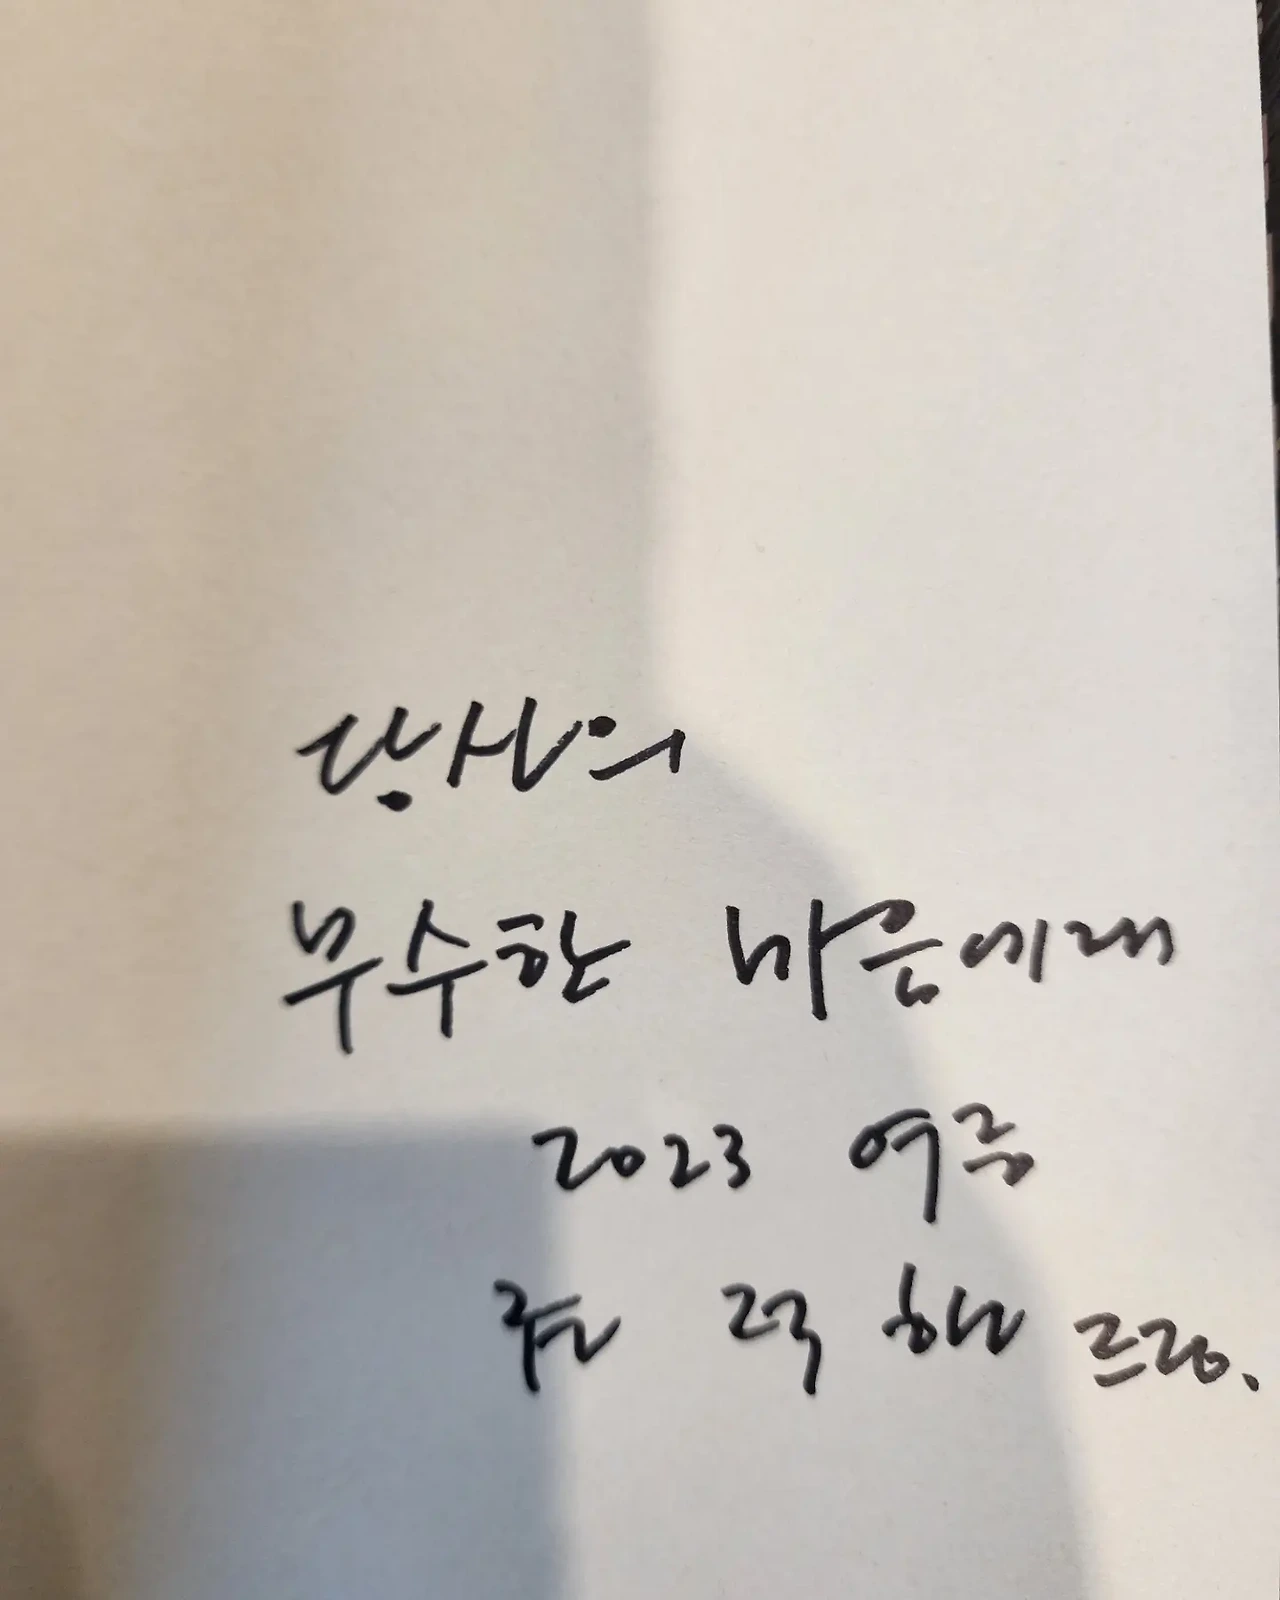 당신의
무수한 마음에게
2023 여름
드림.